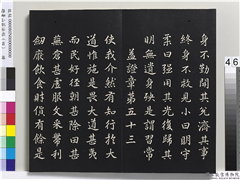 身不勤開其兌濟其事
終身不救見小曰明守
柔曰強用其光復歸其
明無遺身殃是謂習常
益證章第五十三
使我介然有知行於大
道惟施是畏大道甚夷
而民好徑朝甚除田甚
蕪倉甚虛服文采帶利
劒厭飲食財貨有餘是
46